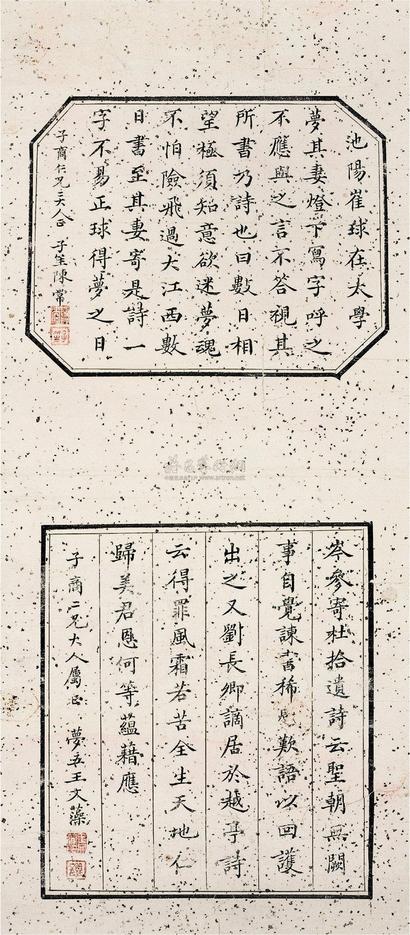 池陽崔球在太學
夢其妻燈下寫字呼之
不應與之言不答視其
所書乃詩也曰數日相
望極須知意欲迷夢魂
不怕險飛過大江西數
日書至其妻寄是詩一
字不易正球得夢之日
子商仁兄大人正 子笙陳常
岑參寄杜拾遺詩云聖朝無闕
事自覺諫書稀歎語以回護
出之又劉長卿謫居於越亭詩
云得罪風霜苦全生天地仁
歸美君恩何等蘊藉應
子商二兄大人屬正 夢五王文藻